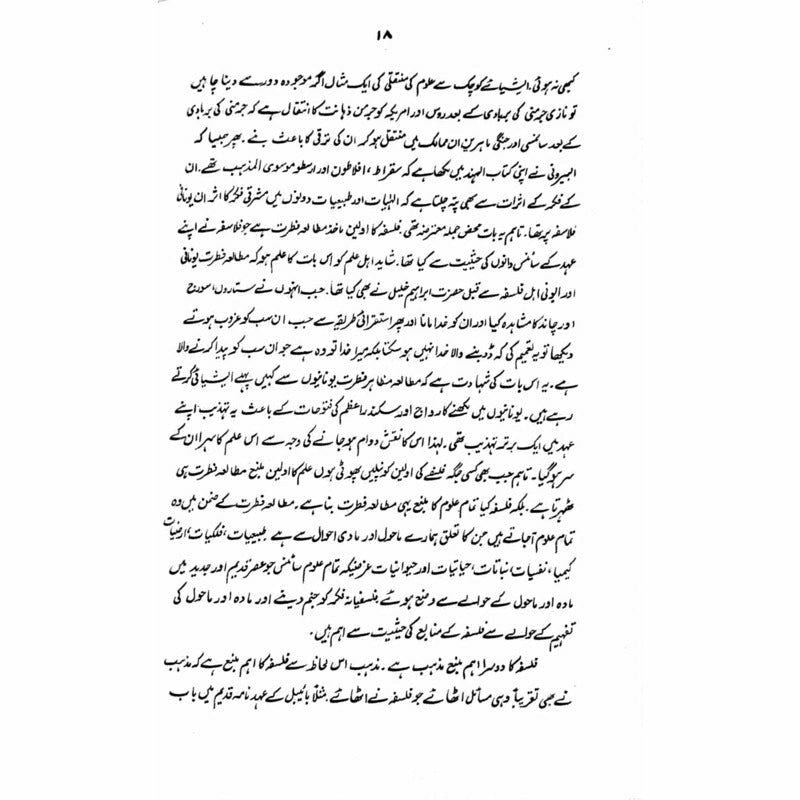 ۱۸
کبھی نہ ہوئی. ایشیائے کوچک سے علوم کی منتقلی کی ایک مثال اگر موجودہ دور سے دینا چاہیں
تو نازی جرمنی کی بربادی کے بعد روس اور امریکہ کو جرمن ذہانت کا انتقال ہے کہ جرمنی کی بربادی
کے بعد سائنسی اور جنگی ماہرین ان ممالک میں منتقل ہو کر ان کی ترقی کا باعث بنے. پھر جیسا کہ
البیرونی نے اپنی کتاب الہند میں لکھا ہے کہ سقراط، افلاطون اور ارسطو موسوی المذہب تھے. ان
کے فکر کے اثرات سے بھی پتہ چلتا ہے کہ الہٰیات اور طبیعیات دونوں میں مشرقی فکر کا اثر ان یونانی
فلاسفہ پر تھا. تاہم یہ بات محض جملہ معترضہ تھی. فلسفہ کا اولین ماخذ مطالعہ فطرت ہے جو فلاسفہ نے اپنے
عہد کے سائنس دانوں کی حیثیت سے کیا تھا. شاید اہل علم کو اس بات کا علم ہو کہ مطالعہ فطرت یونانی
اور ایونی اہل فلسفہ سے قبل حضرت ابراہیم خلیل نے بھی کیا تھا. جب انہوں نے ستاروں، سورج
اور چاند کا مشاہدہ کیا اور ان کو خدا مانا اور پھر استقرائی طریقہ سے جب ان سب کو غروب ہوتے
دیکھا تو یہ تعمیم کی کہ ڈوبنے والا خدا نہیں ہو سکتا بلکہ میرا خدا تو وہ ہے جو ان سب کو پیدا کرنے والا
ہے. یہ اس بات کی شہادت ہے کہ مطالعہ مظاہر فطرت یونانیوں سے کہیں پہلے ایشیائی کرتے
رہے ہیں. یونانیوں میں لکھنے کا رواج اور سکندر اعظم کی فتوحات کے باعث یہ تہذیب اپنے
عہد میں ایک برتر تہذیب تھی. لہٰذا اس کا نقش دوام ہو جانے کی وجہ سے اس علم کا سہرا ان کے
سر ہو گیا. تاہم جب بھی کسی جگہ فلسفے کی اولین کونپلیں پھوٹی ہوں علم کا اولین منبع مطالعہ فطرت ہی
ٹھہرتا ہے. بلکہ فلسفہ کیا تمام علوم کا منبع یہی مطالعہ فطرت بنا ہے. مطالعہ فطرت کے ضمن میں وہ
تمام علوم آجاتے ہیں جن کا تعلق ہمارے ماحول اور مادی احوال سے ہے طبیعیات، فلکیات، ارضیات
کیمیا، نفسیات نباتات، حیاتیات اور حیوانیات غرضیکہ تمام علوم سائنسی جو عصر قدیم اور جدید میں
مادہ اور ماحول کے حوالے سے وضع ہوئے فلسفیانہ فکر کو جنم دینے اور مادہ اور ماحول کی
تفہیم کے حوالے سے فلسفہ کے منابع کی حیثیت سے اہم ہیں.
فلسفہ کا دوسرا اہم منبع مذہب ہے. مذہب اس لحاظ سے فلسفہ کا اہم منبع ہے کہ مذہب
نے بھی تقریباً وہی مسائل اٹھائے جو فلسفہ نے اٹھائے. مثلاً بائیبل کے عہد نامہ قدیم میں باب